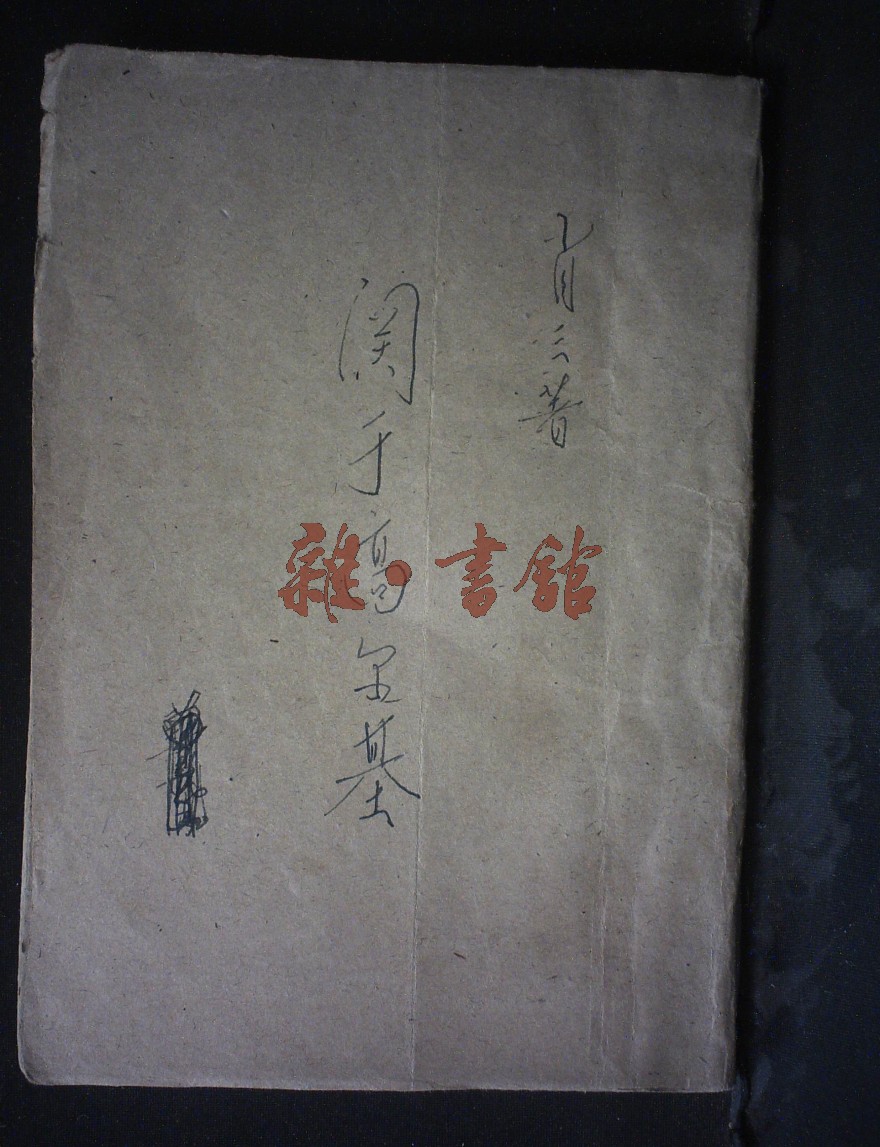 肖三著
関于高尔基
雜·書館